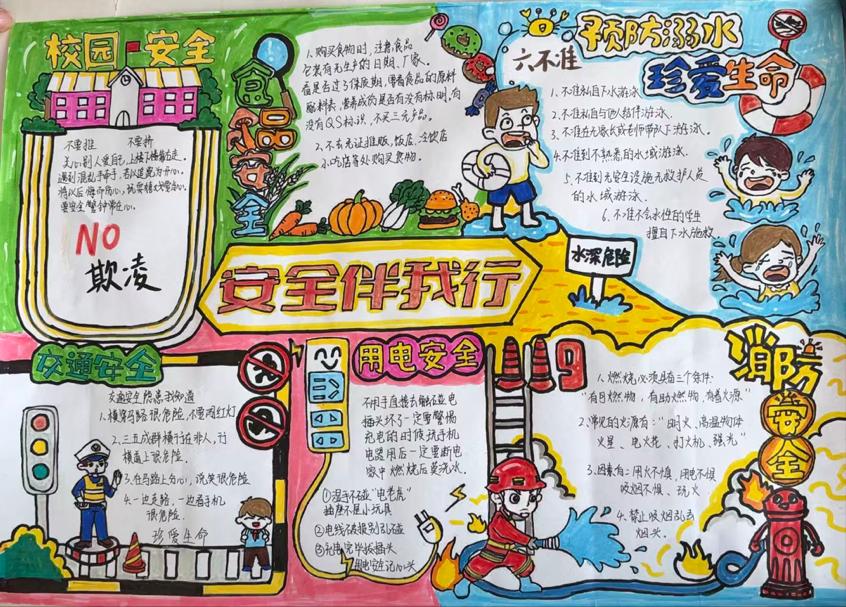 校园安全
不要推 不要挤
关心别人爱自己,上楼下楼靠右走。
NO
欺凌
食品安全
1、购买食物时,注意食品
包装有无生产的日期、厂家。
看是否过了保质期,看看食品的原料
没有QS标识,不买三无产品。
2、不去无证摊贩、饭店、冷饮店
小吃店等处购买食物。
预防溺水
珍爱生命
六不准
1、不准私自下水游泳
2、不准私自与他人结伴游泳。
3、不准在无家长或老师带队下游泳。
4、不准到不熟悉的水域游泳。
5、不准到无安全设施无救护人员
的水域游泳。
6、不准不会水性的学生
擅自下水施救。
水深危险
安全伴我行
交通安全
交通安全隐患我知道
1、横穿马路很危险,不要闯红灯
2、三五成群横行在
横道上很危险。
3、在马路上
很危险
4、一边走路、一边看手机
很危险。
珍爱生命
用电安全
不用手直接去触碰电
插头坏了一定要警惕
充电的时候玩手机
电器用后一定要断电
家中燃烧后莫浇水。
①湿手不碰"电老虎"
插座不是小玩具
②电线破损别乱碰
③
用电安全记心头
119
消防安全
1、燃烧必须具有三个条件:
"有可燃物,有助燃物,有着火源"
2、常见的火源有:"明火、高温物体
火星、电火花、
强光"
3、因素有:用火不慎、用电不慎
吸烟不慎、玩火
4、禁止吸烟乱丢
烟头。